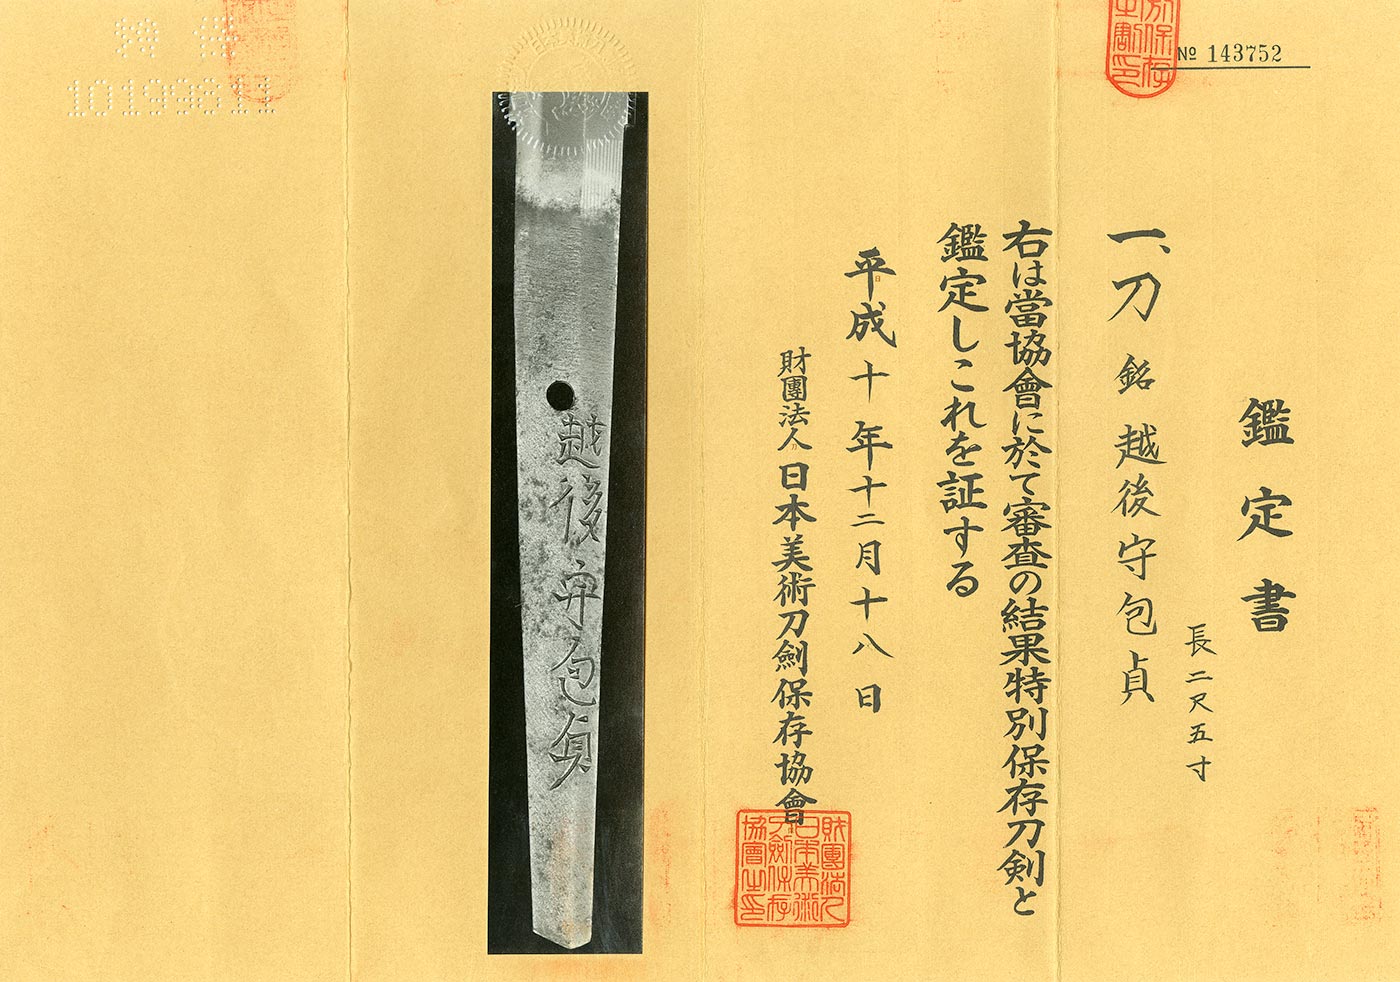 № 143752
鑑定書
長二尺五寸
一、刀 銘 越後守包貞
右は當協會に於て審査の結果特別保存刀剣と
鑑定しこれを証する
平成十年十二月十八日
財團法人 日本美術刀劍保存協會
財團法人
日本美術
刀劍保存
協會之印
越後守包貞
10199811